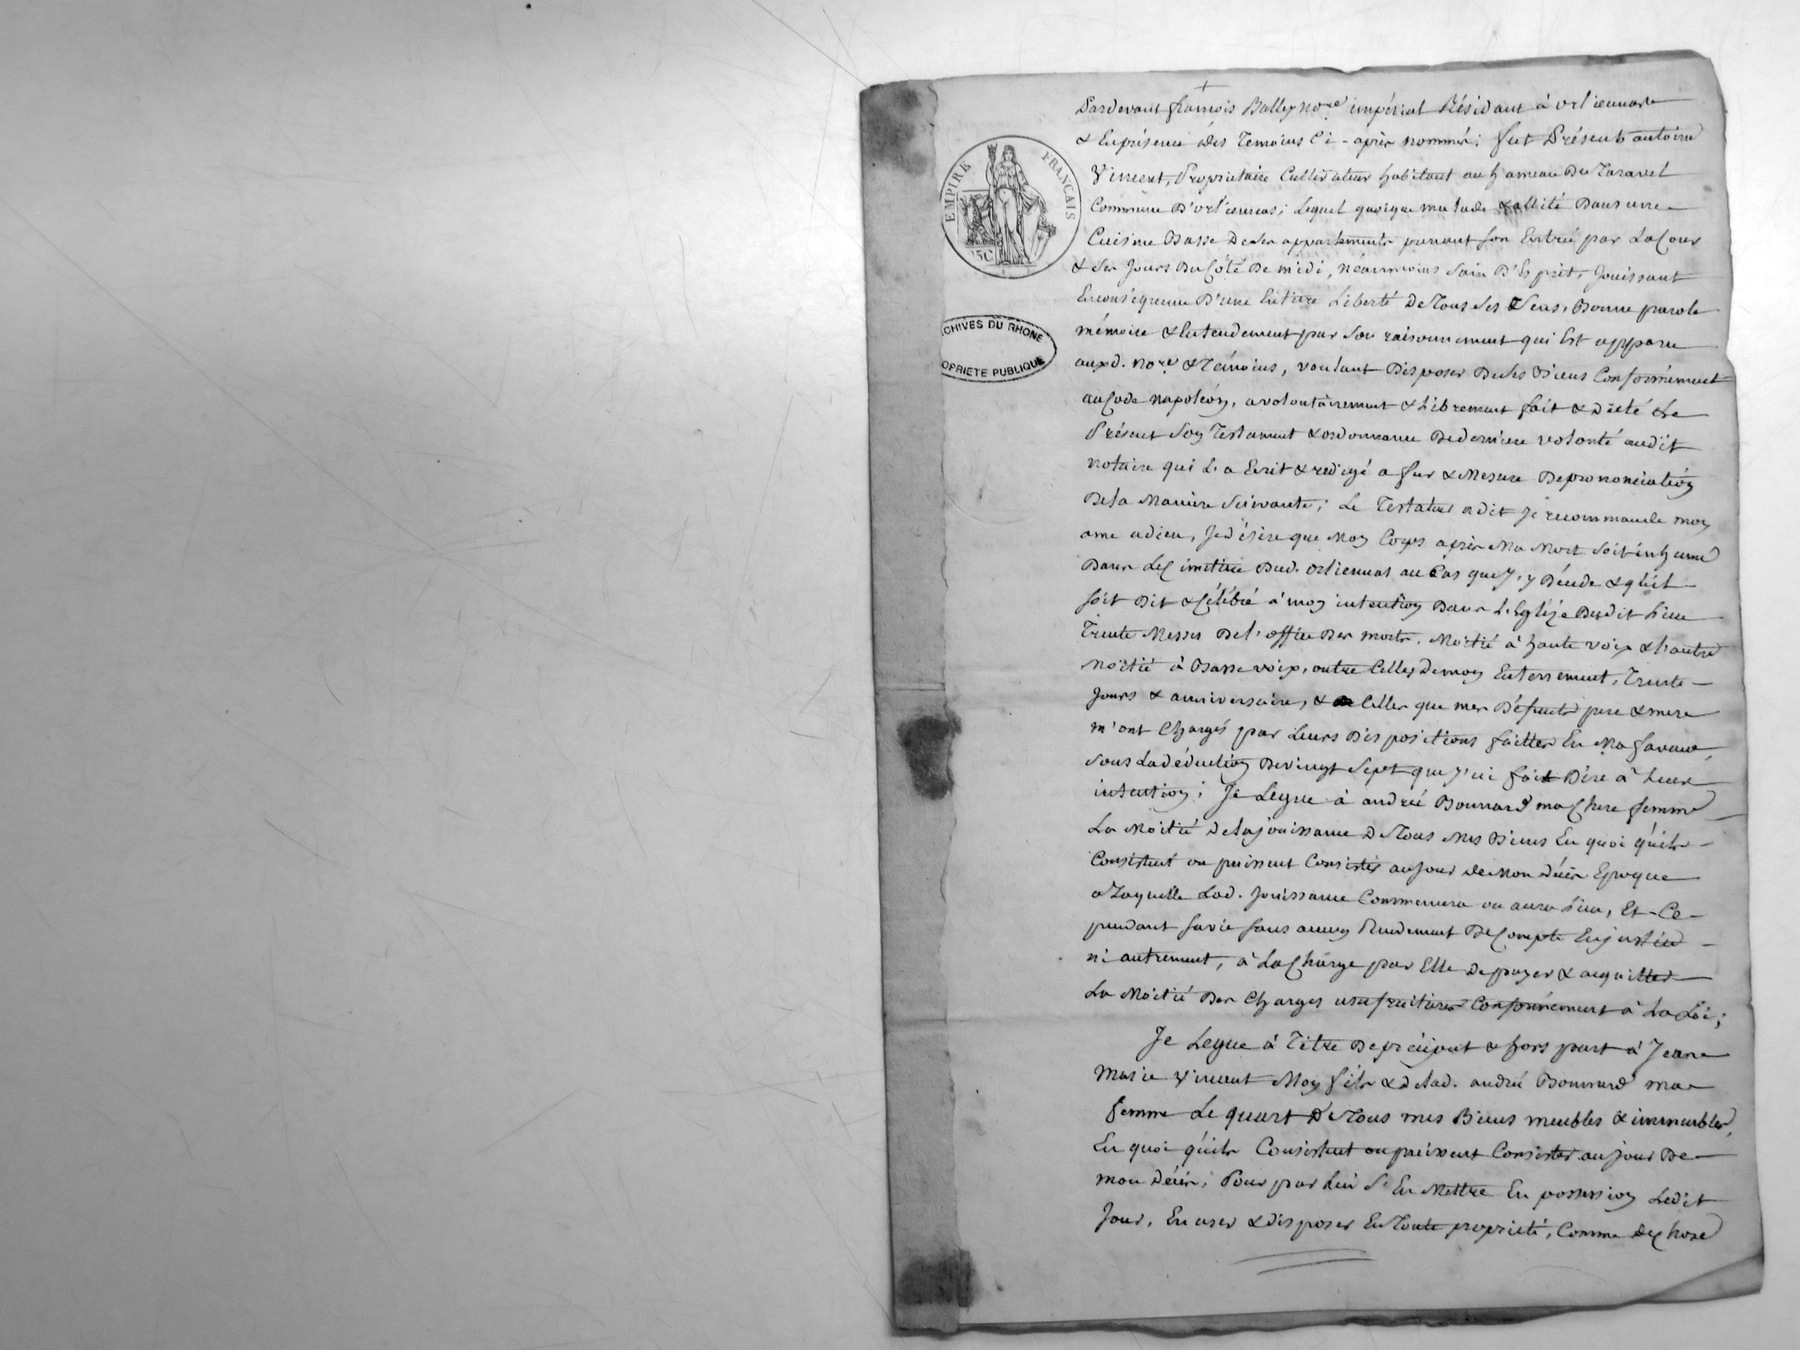 Pardevant françois Balley no.re impérial Résidant à orliennas
& En présence des Temoins Ci-après nommés: fut Présent antoine
Vincent, Proprietaire Cultivateur habitant au hameau Du Taravel
Commune D'orliennas; Lequel quoique malade & allité Dans une
Cuisine Basse De ses appartements prenant son Entrée par La Cour
& Ses Jours Du Côté De midi, néanmoins Sain D'Esprit, Jouissant
En conséquence D'une Entière Liberté De Tous Ses Sens, Bonne parole
mémoire & Entendement par Son raisonnement qui Est apparu
auxd. no.re & Témoins, voulant Disposer De Ses Biens Conformément
au Code napoléon, a volontairement & Librement fait & Dicté Le
Présent Son Testament & ordonnance De derniere volonté audit
notaire qui L'a Ecrit & redigé a fur & Mesure De prononciation
De la Maniere Suivante; Le Testateur a dit Je recommande mon
ame a dieu, Je désire que Mon Corps après Ma Mort Soit inhumé
Dans Le Cimetiere Dud. orliennas au Cas que J'y Décede & qu'il
soit Dit & Célébré à mon intention Dans L'Eglize Dudit Lieu
Trente Messes De l'office Des morts, Moitié à haute voix & L'autre
Moitié à Basse voix, outre Celles De mon Enterrement, Trente
Jours & anniversaire, & Celles que mes Défunts pere & mere
m'ont Chargés par Leurs Dispositions faittes En Ma faveur,
Sous La déduction De vingt Sept que J'ai fait Dire à Leur
intention; Je Legue à andrée Bonnard ma Chere femme
La Moitié De la jouissance De Tous Mes Biens En quoi qu'ils
Consistent ou puissent Consister au Jour de Mon décès Epoque
a Laquelle Lad. Jouissance Commencera ou aura Lieu, Et Ce
pendant Sa vie sans aucun Rendement De Compte En justice
ni autrement, à La Charge par Elle De payer & acquitter
La Moitié Des Charges usufruitieres Conformément à La Loi;
Je Legue à Titre De préciput & hors part à Jeane
Marie Vincent Mon fils & De lad. andrée Bonnard ma
femme Le quart De Tous mes Biens meubles & immeubles,
En quoi qu'ils Consistent ou puissent Consister au jour De
mon Décès; Pour par Lui S'En Mettre En possession Ledit
Jour, En user & disposer En Toute propriété, Comme De Chose
EMPIRE FRANÇAIS
75C
CHIVES DU RHONE
OPRIETE PUBLIQUE